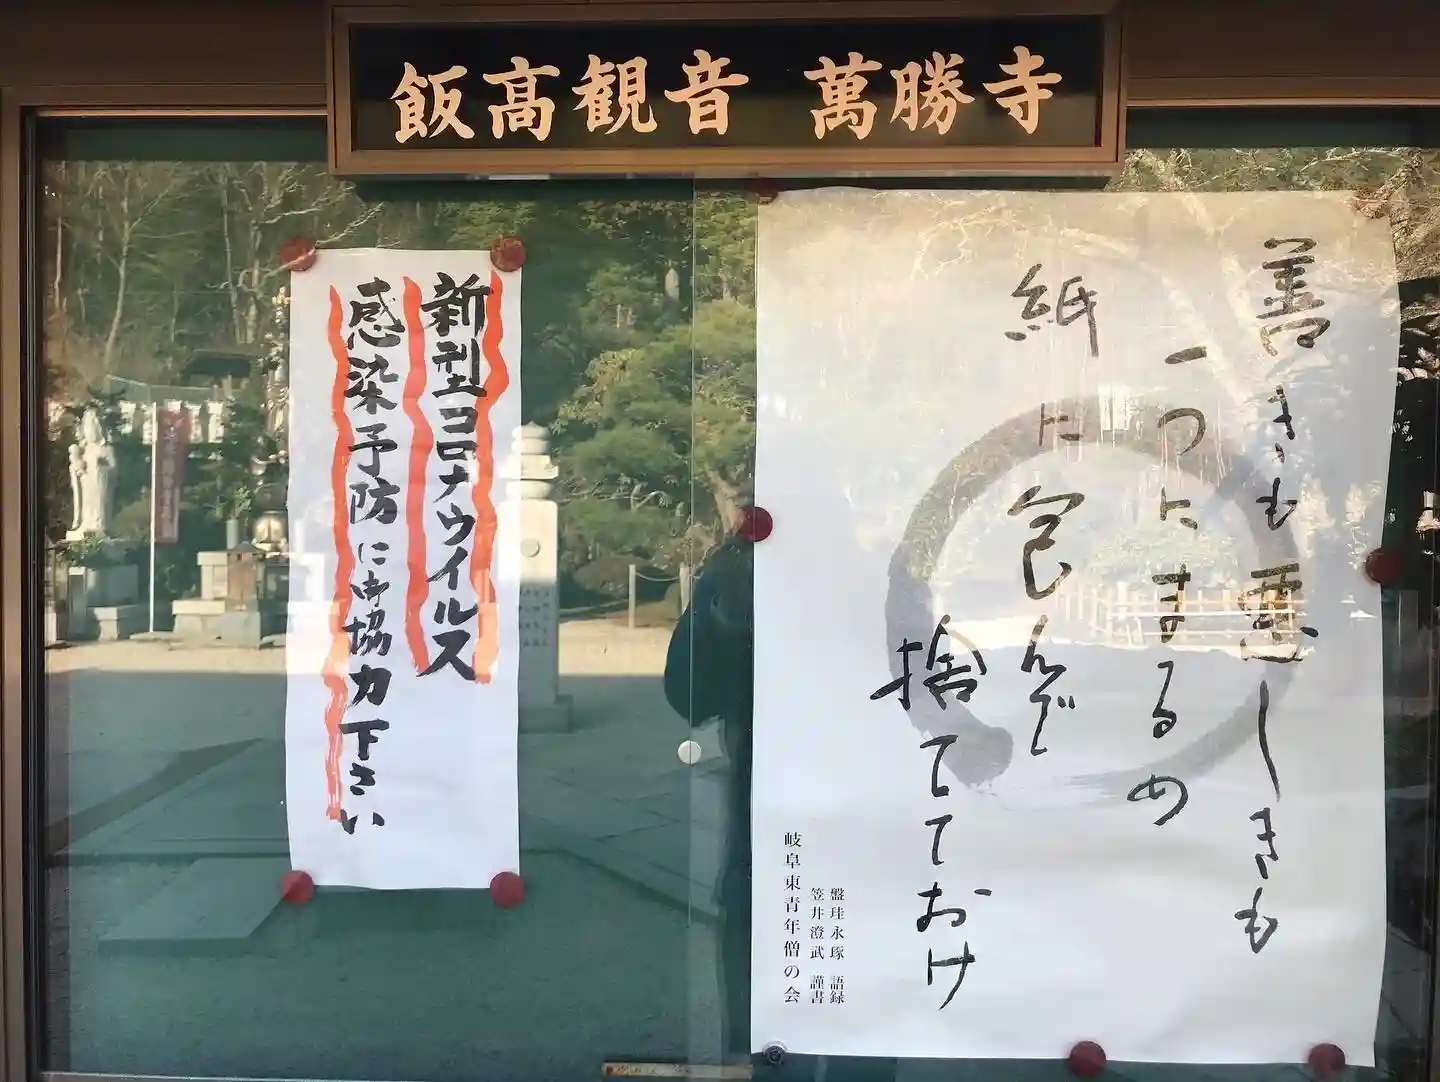 飯高観音 萬勝寺
善きも悪しきも
一つにまるめ
紙に包んで
捨ててておけ
盤珪永琢 語録
笠井澄武 謹書
岐阜東青年僧の会
新型コロナウイルス
感染予防に御協力下さい